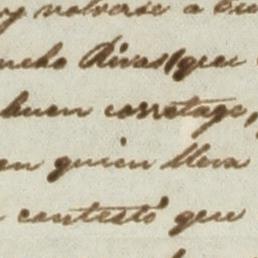 y volverse a
ncho Rivas (que
buen corretage,
en quien lleva
contestó que